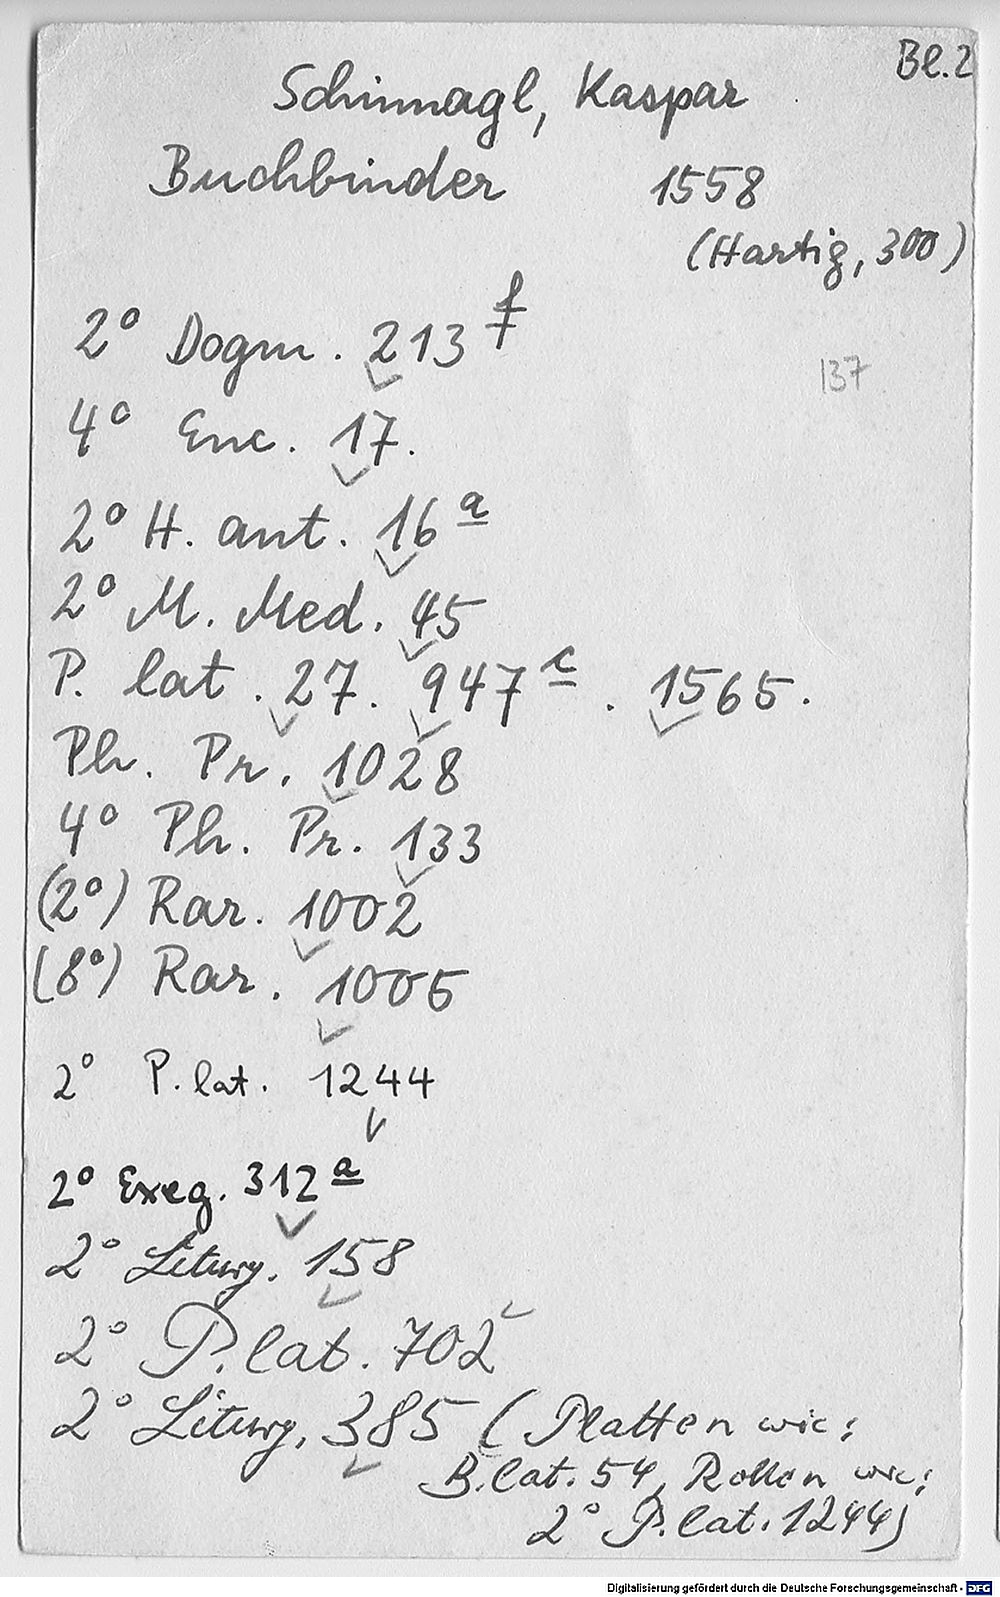 Bl. 2
Schinnagl, Kaspar
Buchbinder 1558
(Hartig, 300)
2° Dogm. 213 f
137
4° Enc. 17.
2° H. ant. 16 a
2° M. Med. 45
P. lat. 27. 947 c. 1565.
Ph. Pr. 1028
4° Ph. Pr. 133
(2°) Rar. 1002
(8°) Rar. 1005
2° P. lat. 1244
2° Exeg. 312 a
2° Liturg. 158
2° P. lat. 702
2° Liturg. 385 (Platten wie:
B. lat. 54, Rollen wie:
2° P. lat. 1244)
Digitalisierung gefördert durch die Deutsche Forschungsgemeinschaft - DFG